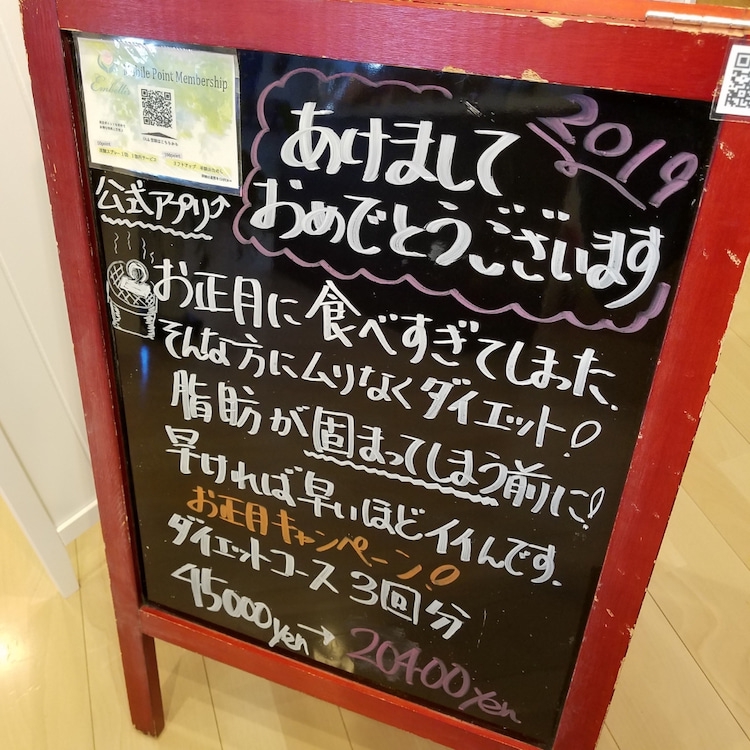 Mobile Point Membership
公式アプリ↑
2019
あけまして
おめでとうございます
お正月に食べすぎてしまった、
そんな方にムリなくダイエット!
脂肪が固まってしまう前に!
早ければ早いほどイイんです。
お正月キャンペーン!
ダイエットコース3回分
45000yen→20400yen